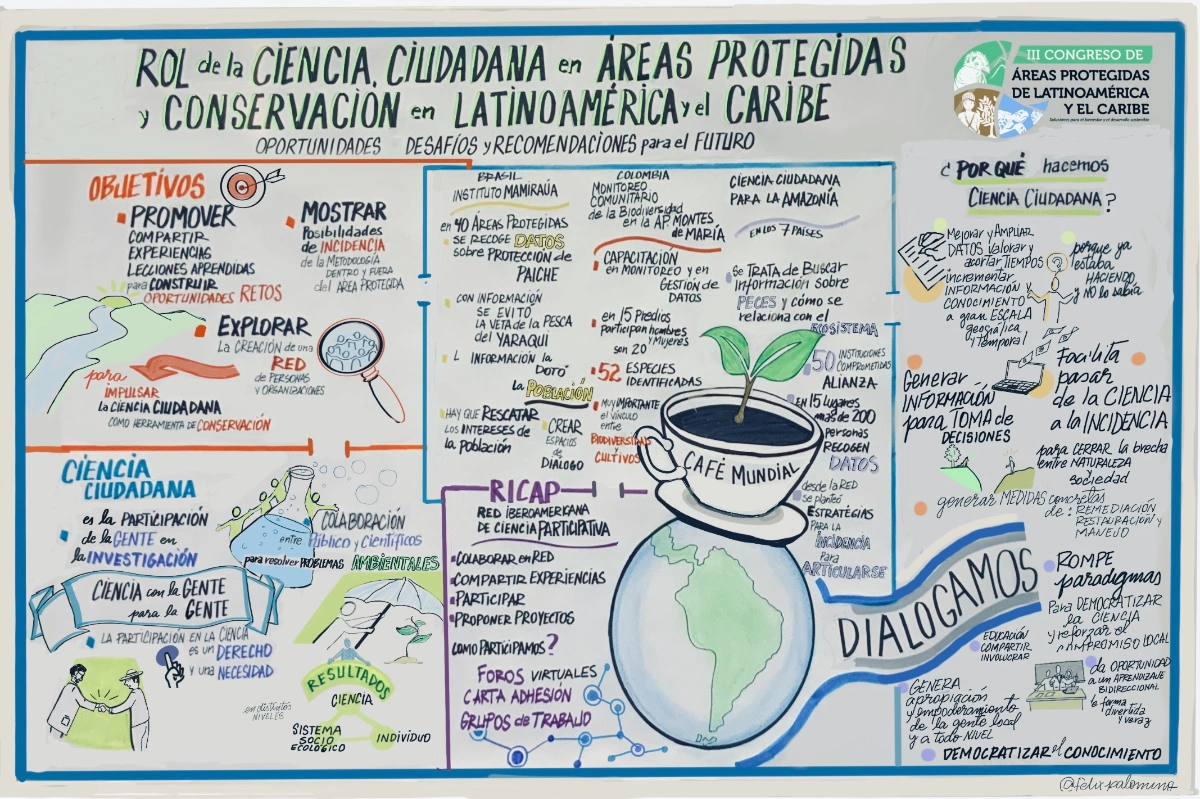 ROL de la CIENCIA CIUDADANA en ÁREAS PROTEGIDAS
y CONSERVACIÓN en LATINOAMÉRICA y el CARIBE
OPORTUNIDADES DESAFÍOS y RECOMENDACIONES para el FUTURO
III CONGRESO DE
ÁREAS PROTEGIDAS
DE LATINOAMÉRICA
Y EL CARIBE
Soluciones para el bienestar y el desarrollo sostenible
OBJETIVOS
PROMOVER
COMPARTIR
EXPERIENCIAS
LECCIONES APRENDIDAS
para CONSTRUIR
OPORTUNIDADES RETOS
MOSTRAR
Posibilidades
de INCIDENCIA
de la METODOLOGÍA
DENTRO y FUERA
del ÁREA PROTEGIDA
EXPLORAR
LA CREACIÓN de una
RED
de PERSONAS
y ORGANIZACIONES
para
IMPULSAR
la CIENCIA CIUDADANA
COMO HERRAMIENTA de CONSERVACIÓN
CIENCIA
CIUDADANA
es la PARTICIPACIÓN
de la GENTE en
la INVESTIGACIÓN
COLABORACIÓN
entre Público y Científicos
para resolver PROBLEMAS AMBIENTALES
CIENCIA con la GENTE
para la GENTE
LA PARTICIPACIÓN EN LA CIENCIA
es un DERECHO
y una NECESIDAD
RESULTADOS
en distintos
NIVELES
CIENCIA
SISTEMA
SOCIO
ECOLÓGICO
INDIVIDUO
BRASIL
INSTITUTO MAMIRAUÁ
en 40 ÁREAS PROTEGIDAS
SE RECOGE DATOS
sobre PROTECCIÓN de
PAICHE
CON INFORMACIÓN
SE EVITÓ
LA VETA de la PESCA
del YARAQUI
L INFORMACIÓN la
DOTÓ
la POBLACIÓN
HAY QUE RESCATAR
LOS INTERESES de
la Población
CREAR
ESPACIOS
de
DIÁLOGO
COLOMBIA
MONITOREO
COMUNITARIO
de la Biodiversidad
en la AP. MONTES
de MARÍA
CAPACITACIÓN
en MONITOREO y en
GESTIÓN de
DATOS
en 15 Predios
participan hombres
y Mujeres
son 20
52 ESPECIES
IDENTIFICADAS
MUY IMPORTANTE
el VÍNCULO
entre
BIODIVERSIDAD
CULTIVOS
CIENCIA CIUDADANA
PARA LA AMAZONÍA
EN LOS 7 PAÍSES
Se TRATA de BUSCAR
Información sobre
PECES y cómo se
relaciona con el
ECOSISTEMA
50 INSTITUCIONES
COMPROMETIDAS
ALIANZA
EN 15 lugares
mas de 200
personas
RECOGEN
DATOS
desde la RED
se planteó
ESTRATEGIAS
PARA la
INCIDENCIA
para
ARTICULARSE
CAFÉ MUNDIAL
RICAP
RED IBEROAMERIKANA
DE CIENCIA PARTICIPATIVA
COLABORAR en RED
COMPARTIR EXPERIENCIAS
PARTICIPAR
PROPONER PROYECTOS
COMO PARTICIPAMOS?
FOROS VIRTUALES
CARTA ADHESIÓN
GRUPOS de TRABAJO
DIALOGAMOS
¿POR QUÉ hacemos
CIENCIA CIUDADANA?
Mejorar y AMPLIAR
DATOS Valorar y
acortar TIEMPOS
incrementar
INFORMACIÓN
CONOCIMIENTO
a gran ESCALA
geográfica
y Temporal
?
porque ya
estaba
HACIENDO
y NO lo sabía
Generar
INFORMACIÓN
para TOMA de
DECISIONES
Facilita
pasar
de la CIENCIA
a la INCIDENCIA
para CERRAR la brecha
entre NATURALEZA
sociedad
generar MEDIDAS concretas
de: REMEDIACIÓN
RESTAURACIÓN y
MANEJO
ROMPE
paradigmas
Para DEMOCRATIZAR
la CIENCIA
y reforzar el
COMPROMISO LOCAL
EDUCACIÓN
COMPARTIR
INVOLUCRAR
da OPORTUNIDAD
a un APRENDIZAJE
BIDIRECCIONAL
de forma
divertida
y veraz
GENERA
apropiación
y empoderamiento
de la gente local
y a todo NIVEL
DEMOCRATIZAR el CONOCIMIENTO
@felixpalomino